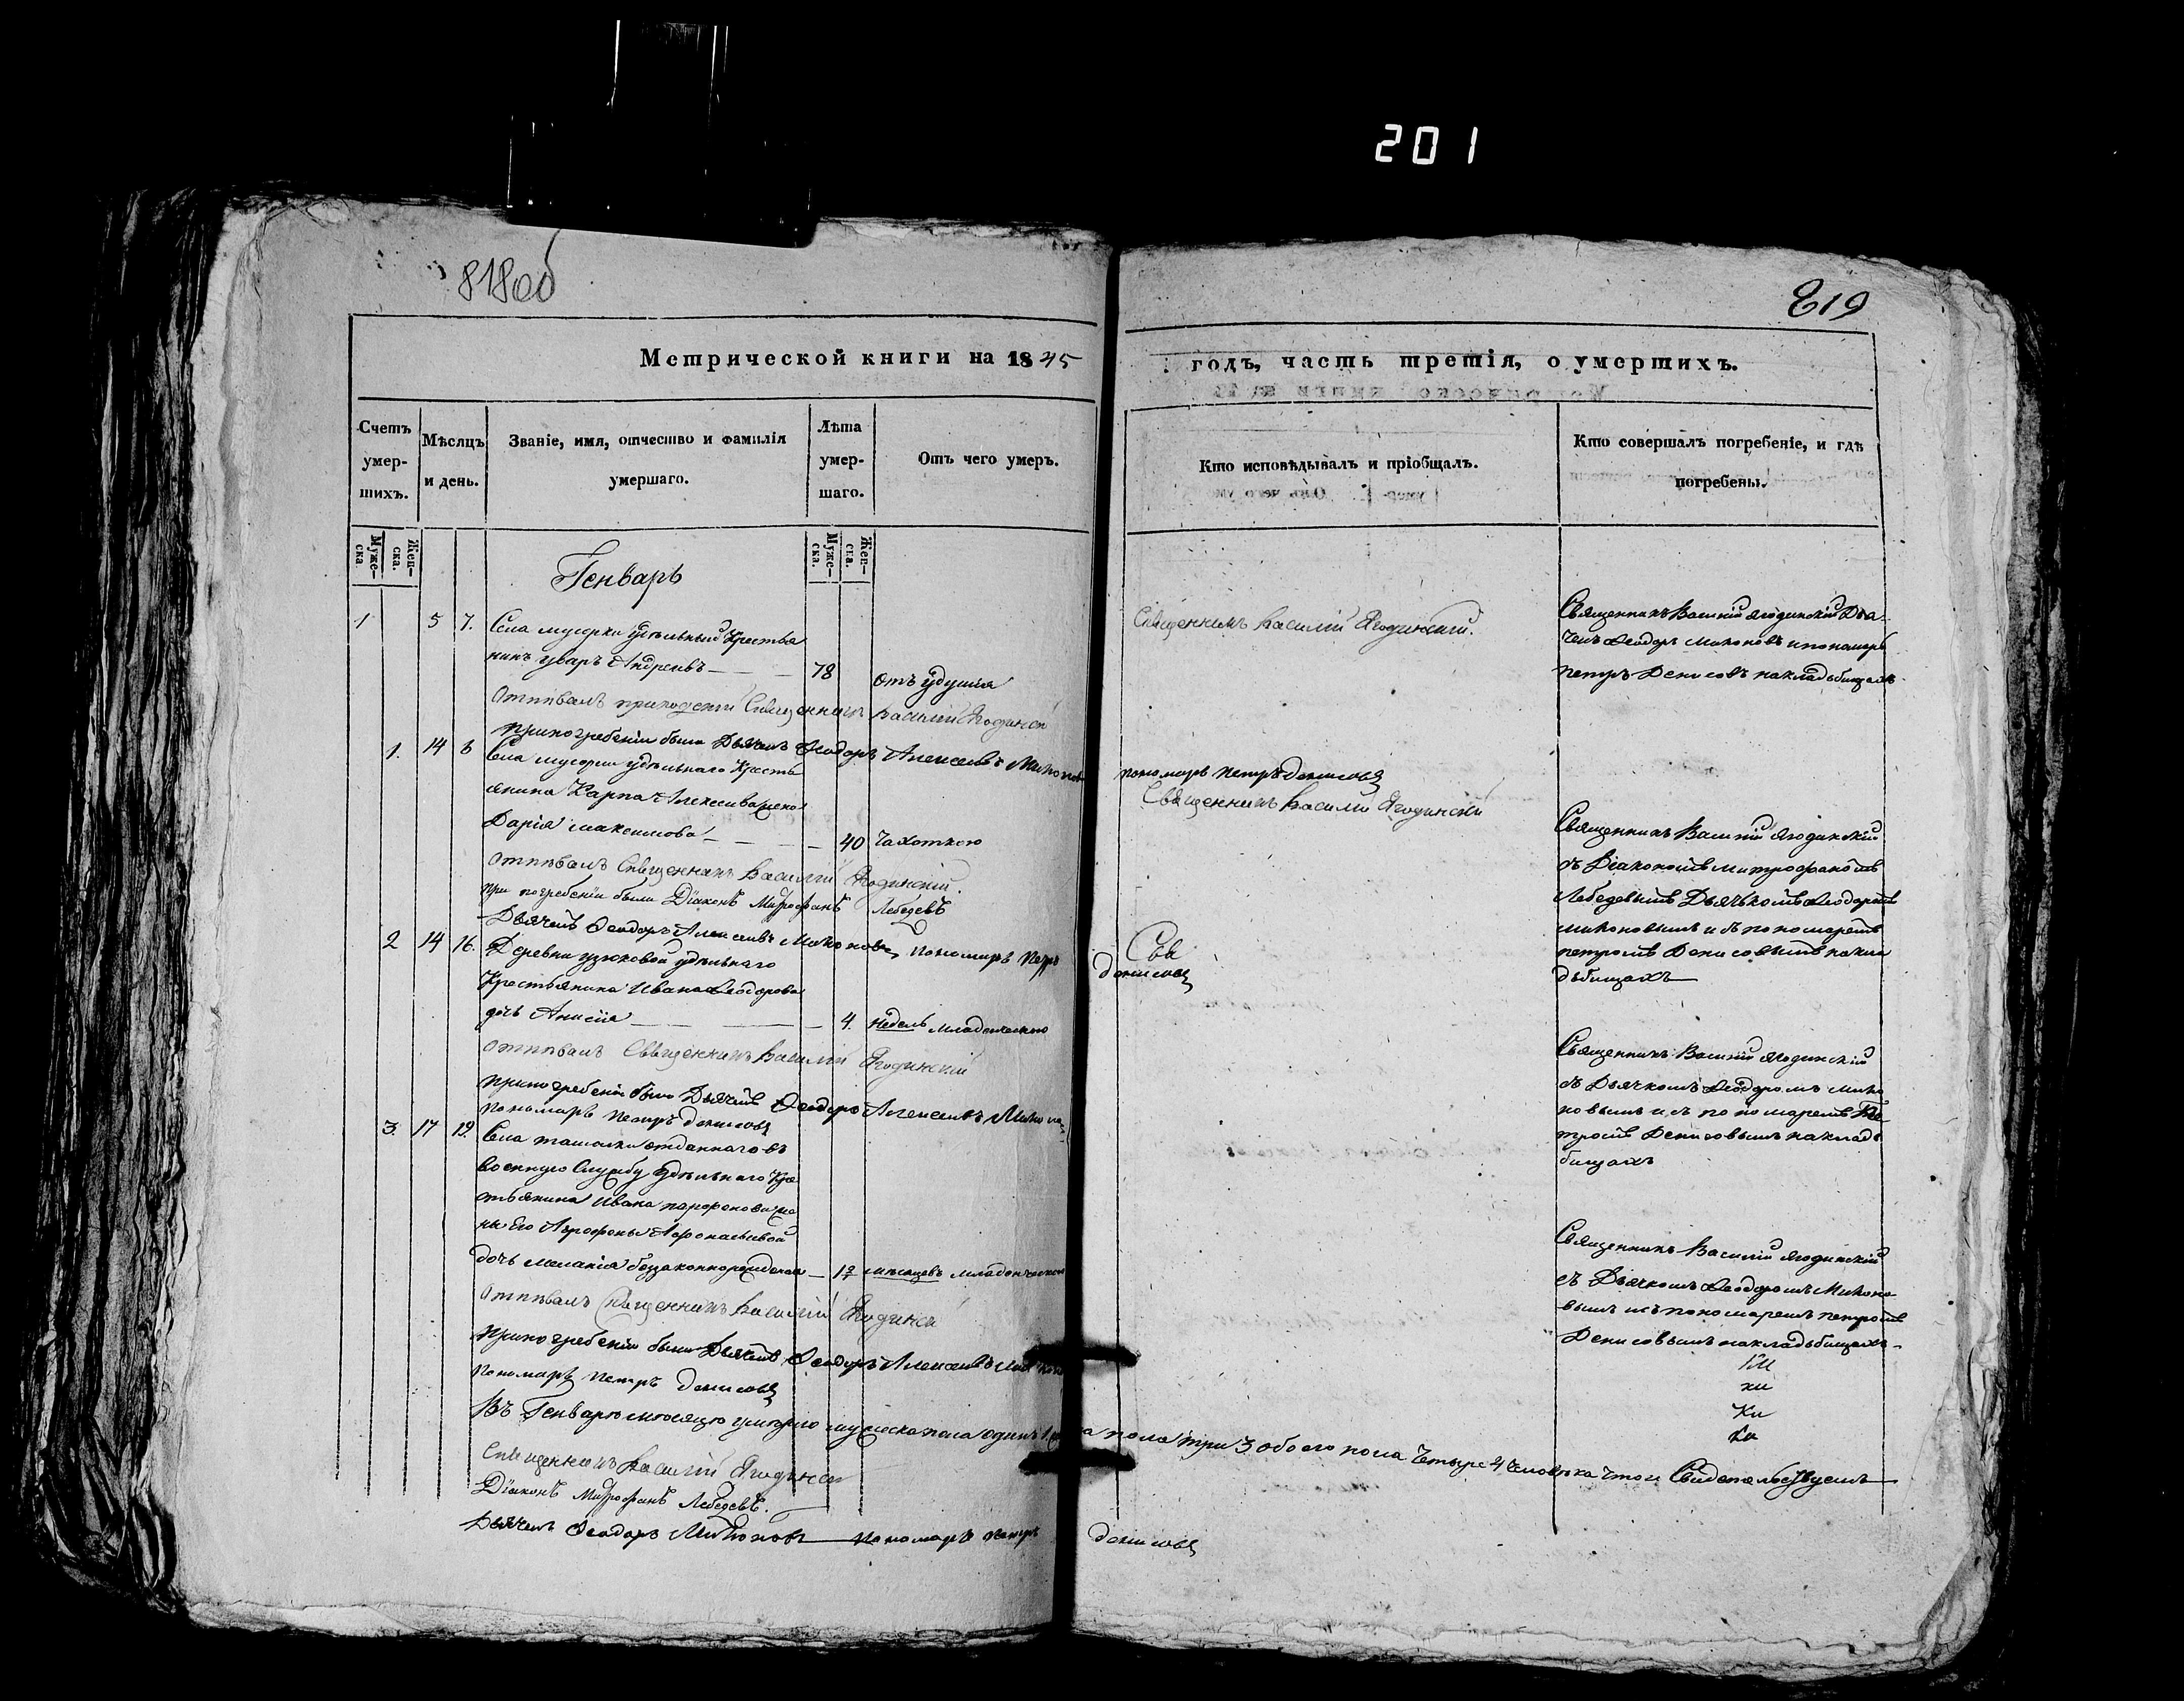 201
818 об
819
Метрической книги на 1845
годъ, часть третія, о умершихъ.
Счетъ умер-шихъ.
Мѣсяцъ и день.
Званіе, имя, отчество и фамилія умершаго.
Лѣта умер-шаго.
Отъ чего умеръ.
Кто исповѣдывалъ и пріобщалъ.
Кто совершалъ погребеніе, и гдѣ погребены.
Муже-ска
Жен-ска.
Муже-ска.
Жен-ска.
Генварь
1 5 7. Села мусорки удѣльный Крестья
нинъ уваръ Андреевъ 78 отъ удушія
Священникъ Василій Ягодинскій.
Священникъ Василій Ягодинскій Дья-
чекъ Ѳеодоръ миконовъ и пономарь
петръ Денисовъ на кладбищахъ
Отпѣвалъ приходскій Священникъ Василій Ягодинскій
при погребеніи были Дьячекъ Ѳеодоръ Алексеевъ Миконовъ
пономарь Петръ денисовъ
1. 14 Села мусорки удѣльнаго Кресть
янина Карпа Алексеива жена
Дарія максимова 40 Чахоткою
Священникъ Василий Ягодинскій
Священникъ Василій Ягодинскій
съ Діакономъ митрофаномъ
Лебедевымъ Дьячькомъ Ѳеодоромъ
миконовымъ и съ пономаремъ
петромъ Денисовымъ на кла
дбищахъ
Отпѣвалъ Священникъ Василій Ягодинскій.
при погребеніи были Діаконъ Митрофанъ Лебедевъ
Дьячекъ Ѳеодоръ Алексеивъ Миконовъ пономарь Петръ
денисовъ
Свя
2 14 16. Деревни узюковой удѣльнаго
Крестьянина Ивана Ѳеодорова
дочь Анисія 4. недель младенческою
Священникъ Василій Ягодинскій
съ Дьячкомъ Ѳеодоромъ мико
новымъ и съ пономаремъ Пе
тромъ Денисовымъ на клад
бищахъ
отпѣвалъ Священникъ Василій Ягодинскій
при погребеніи были Дьячекъ Ѳеодоръ Алексеивъ Миконовъ
пономарь Петръ денисовъ
3. 17 19. Села ташолки отданнаго въ
военную Службу удѣльнаго Кре
стьянина Ивана парфенова же
ны Его Агрофены Афонасьевой
дочь меланія беззаконнорожденая 12 месяцевъ младенческою
Священникъ Василій Ягодинскій
съ Дьячкомъ Ѳеодоромъ Миконо
вымъ и съ пономаремъ петромъ
Денисовымъ на кладбищахъ
Отпѣвалъ Священникъ Василій Ягодинскій
при погребеніи были Дьячекъ Ѳеодоръ Алексеивъ
Пономарь Петръ денисовъ
Въ Генваре месяце умерло мужеска пола одинъ 1 пола три 3 обоего пола четыре 4 человѣка что и Свидетельствуемъ
Священникъ Василій Ягодинскій
Діаконъ Митрофанъ Лебедевъ.
Дьячекъ Ѳеодоръ Миконовъ Пономарь Петръ денисовъ